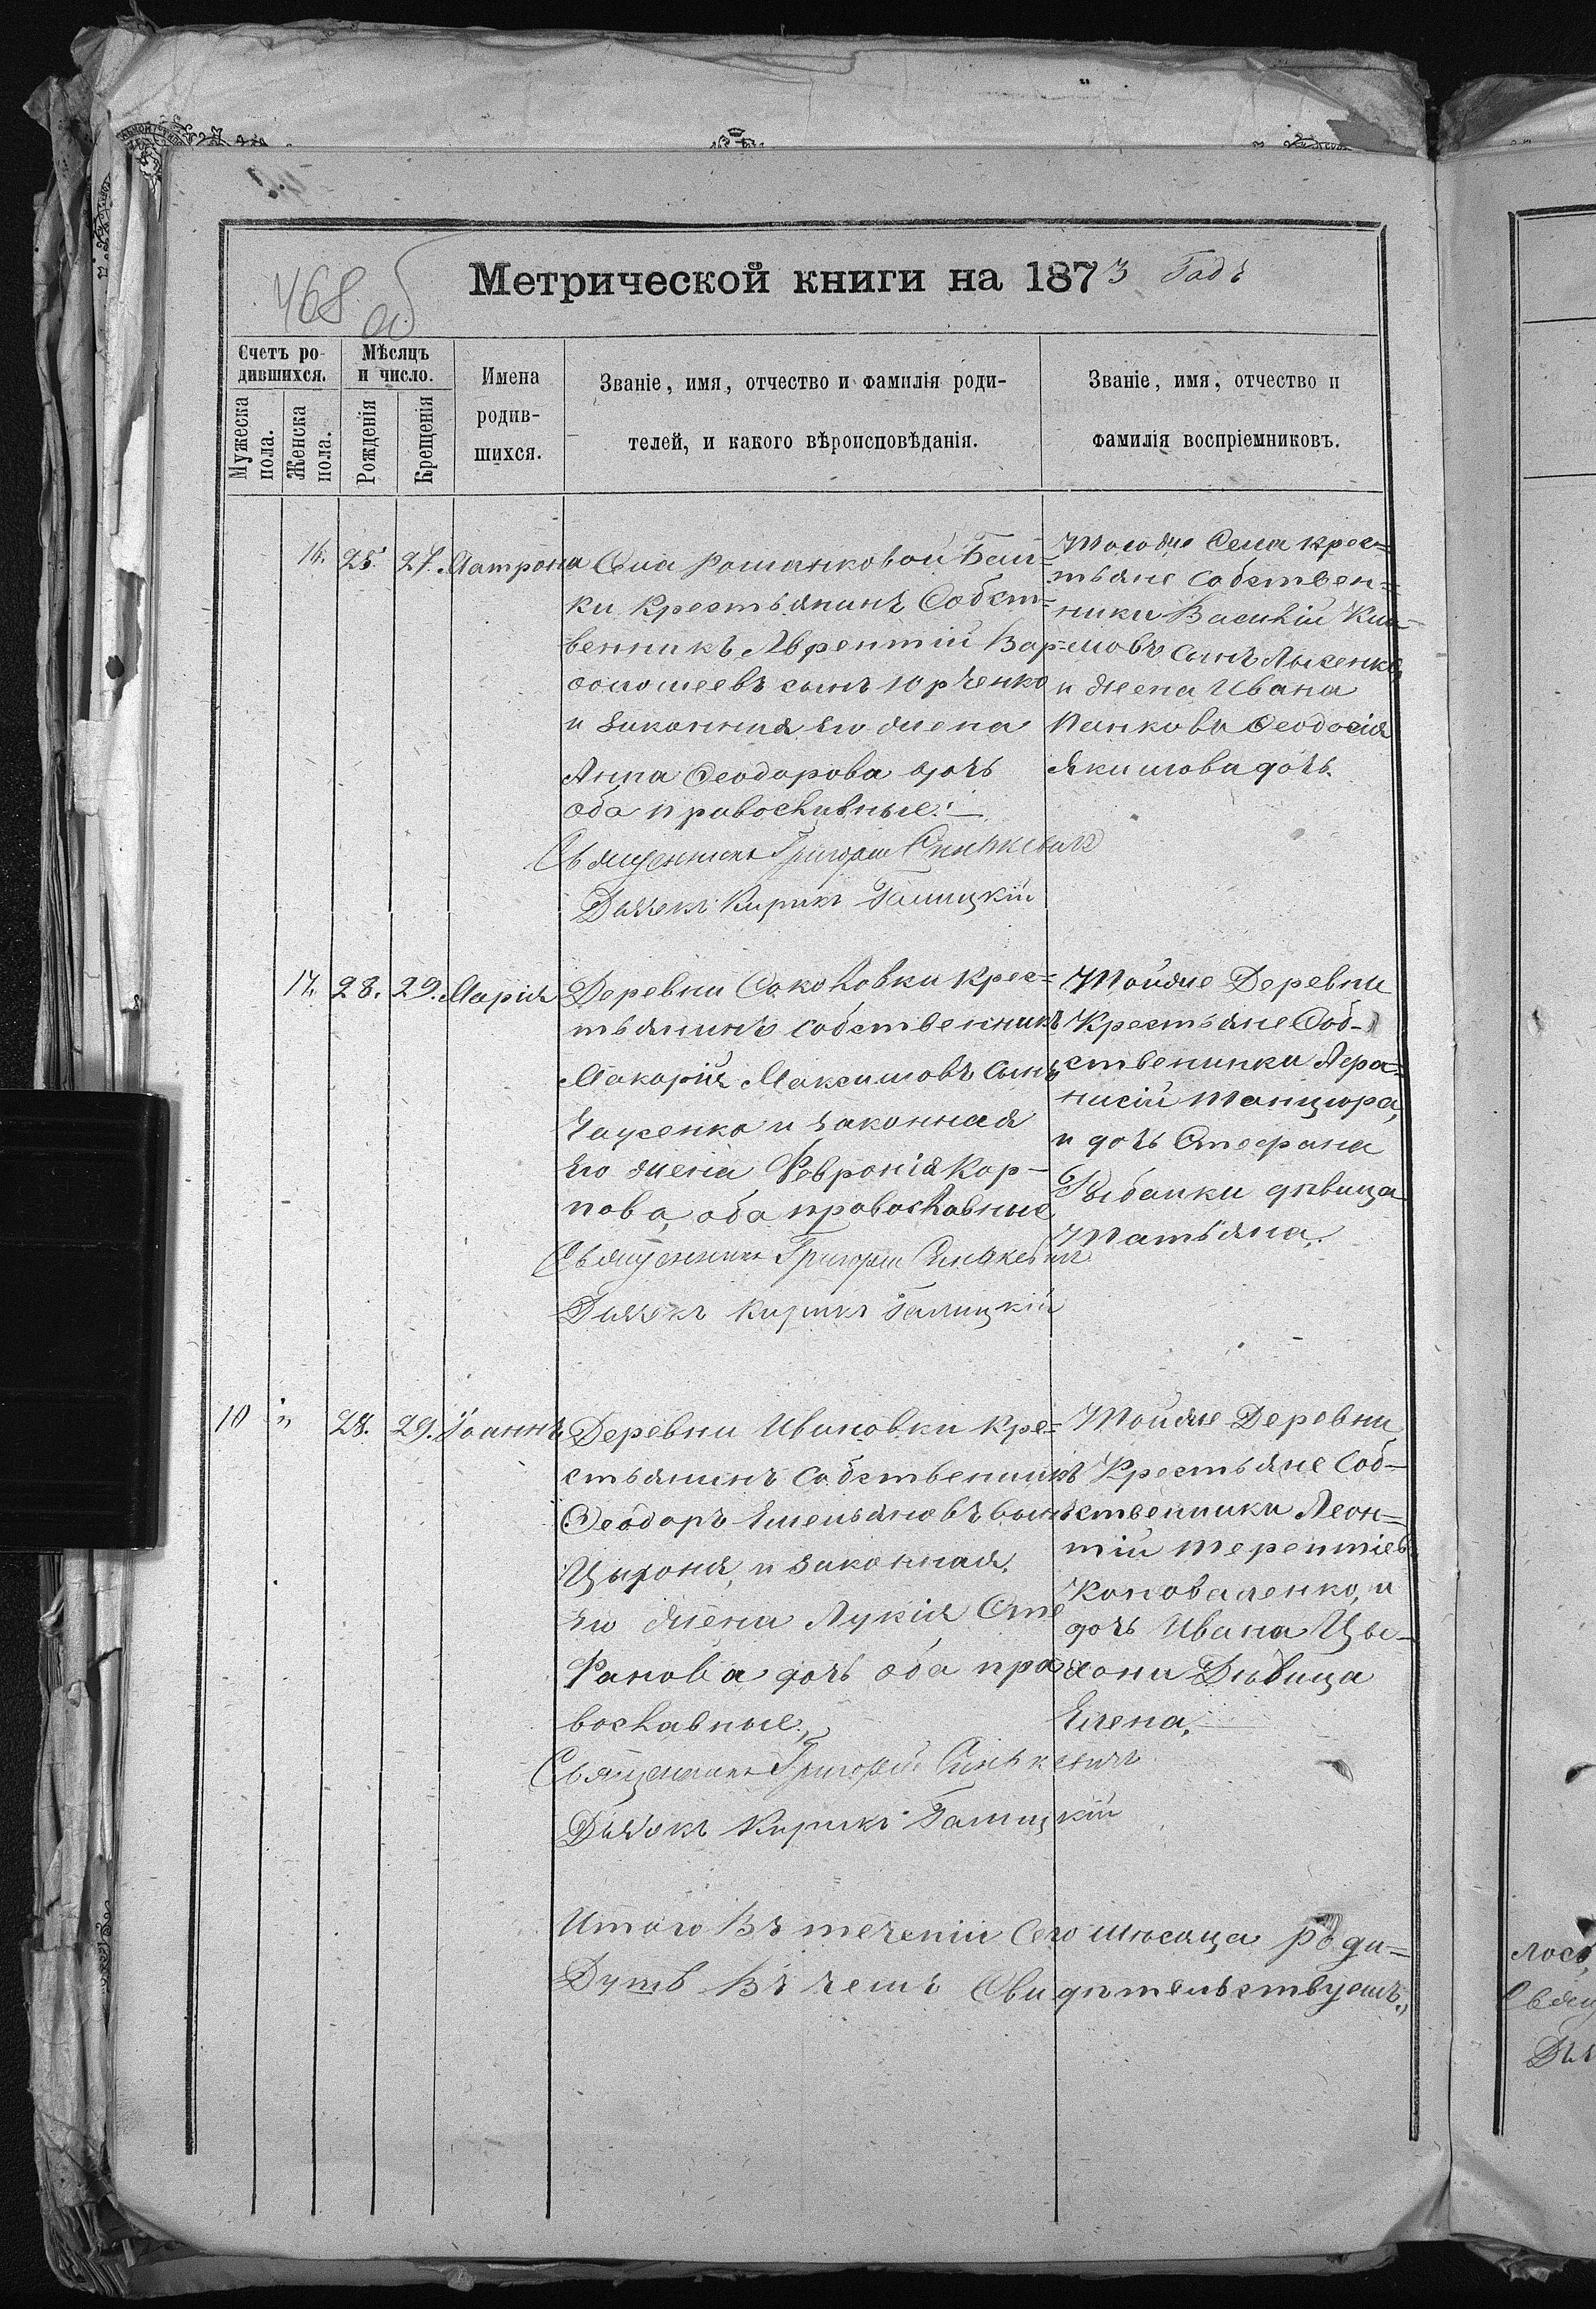 468 об
Метрической книги на 1873 Годъ
Счетъ ро-
дившихся.
Мужеска
пола.
Женска
пола.
Мѣсяцъ
и число.
Рожденія
Крещенія
Имена
родив-
шихся.
Званіе, имя, отчество и фамилія роди-
телей, и какого вѣроисповѣданія.
Званіе, имя, отчество и
фамилія воспріемниковъ.
16. 25. 27. Матрона
Села Романковой Бал-
ки Крестьянинъ Собст-
венникъ Лврентій Вар-
ѳоломеевъ сынъ Юрченко
и законная его жена
Анна Ѳеодорова дочь
оба православные.
Священникъ Григорій Синькевичъ
Дьячекъ Кирикъ Галицкій
Тогоже Села крес-
тьяне собствен-
ники Василій Кли-
мовъ сынъ Лысенко,
и жена Ивана
Панкова Ѳеодосія
Якимова дочь.
17. 28. 29. Марія
Деревни Соколовки Крес-
тьянинъ собственникъ
Макарій Максимовъ сынъ
и законная
его жена Февронія Кар-
пова, оба православные
Священникъ Григорій Синькевичъ
Дьячекъ Кирикъ Галицкій
Тойже Деревни
Крестьяне Соб-
ственники Аѳа-
насій Танцюра,
и дочь Стефана
Рыбалки дѣвица
Татьяна.
10 " 28. 29. Іоаннъ
Деревни Ивановки Кре-
стьянинъ Собственникъ
Ѳеодоръ Емельяновъ сынъ
Цыхоня, и законная
его жена Лукія Сте
фанова дочь оба пра
вославные.
Священникъ Григорій Синькевичъ
Дьячокъ Кирикъ Галицкій
Тойже Деревни
Крестьяне Соб-
ственники Леон-
тій Терентіевъ
Коноваленко, и
дочь Ивана Цы-
хони Дѣвица
Елена.
Итого Въ теченіи Сего мѣсяца роди-
Въ чемъ Свидѣтельствуемъ.